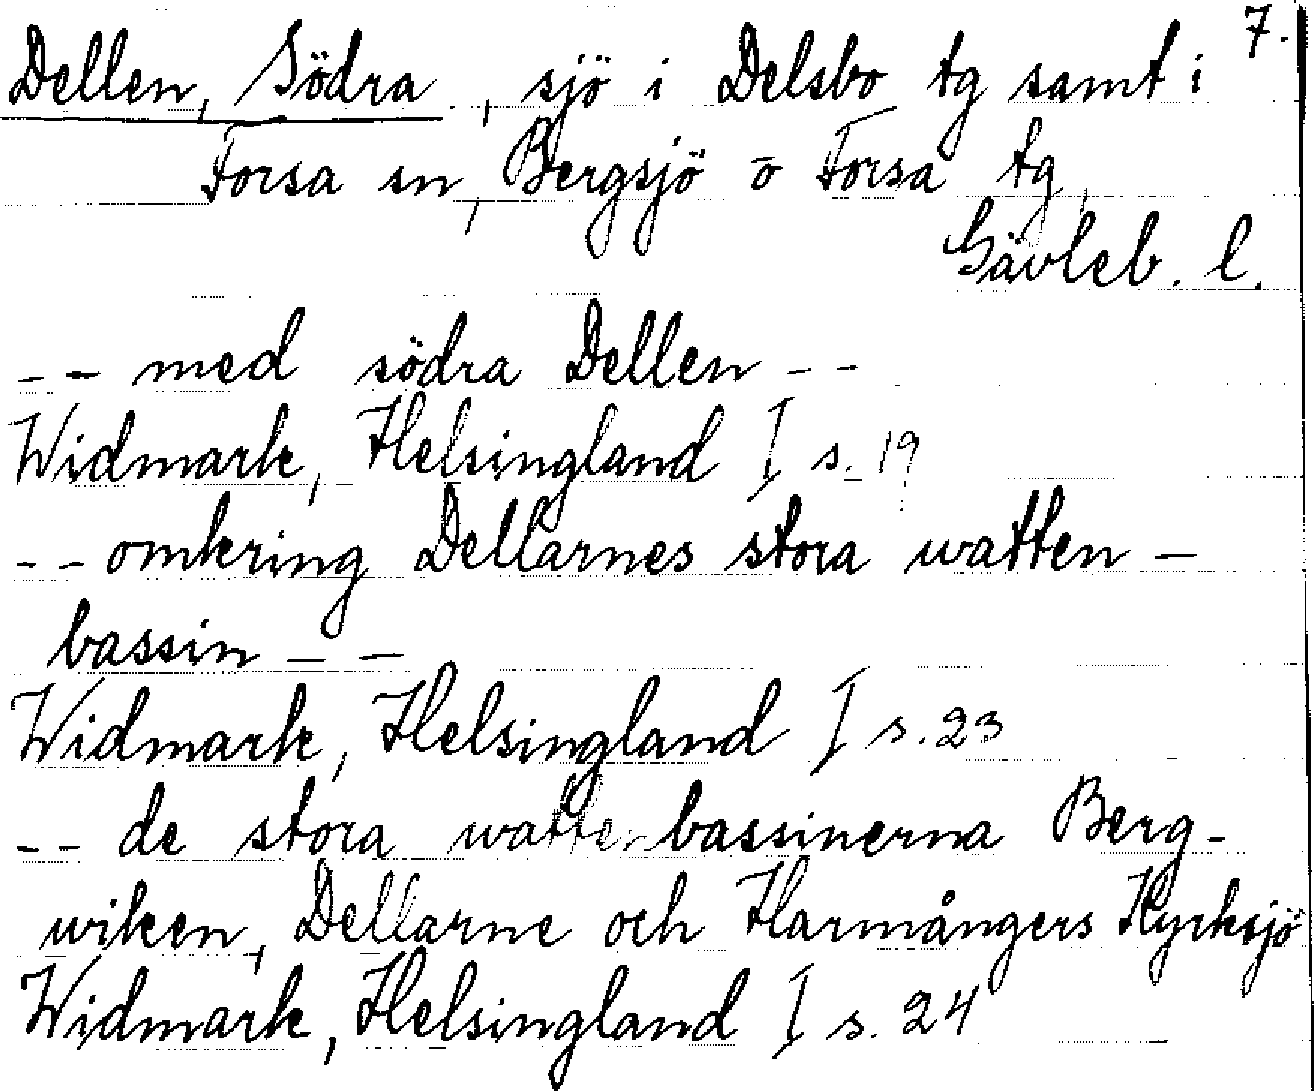 7.
Dellen, Södra, sjö i Delsbo tg samt i
Forsa sn, Bergsjö o Forsa tg,
Gävleb. l.
-- med södra Dellen --
Widmark, Helsingland I s. 19
-- omkring Dellarnes stora watten-
bassin --
Widmark, Helsingland I s. 23
-- de stora wattenbassinerna Berg-
wiken, Dellarne och Harmångers Kyrksjö
Widmark, Helsingland I s. 24